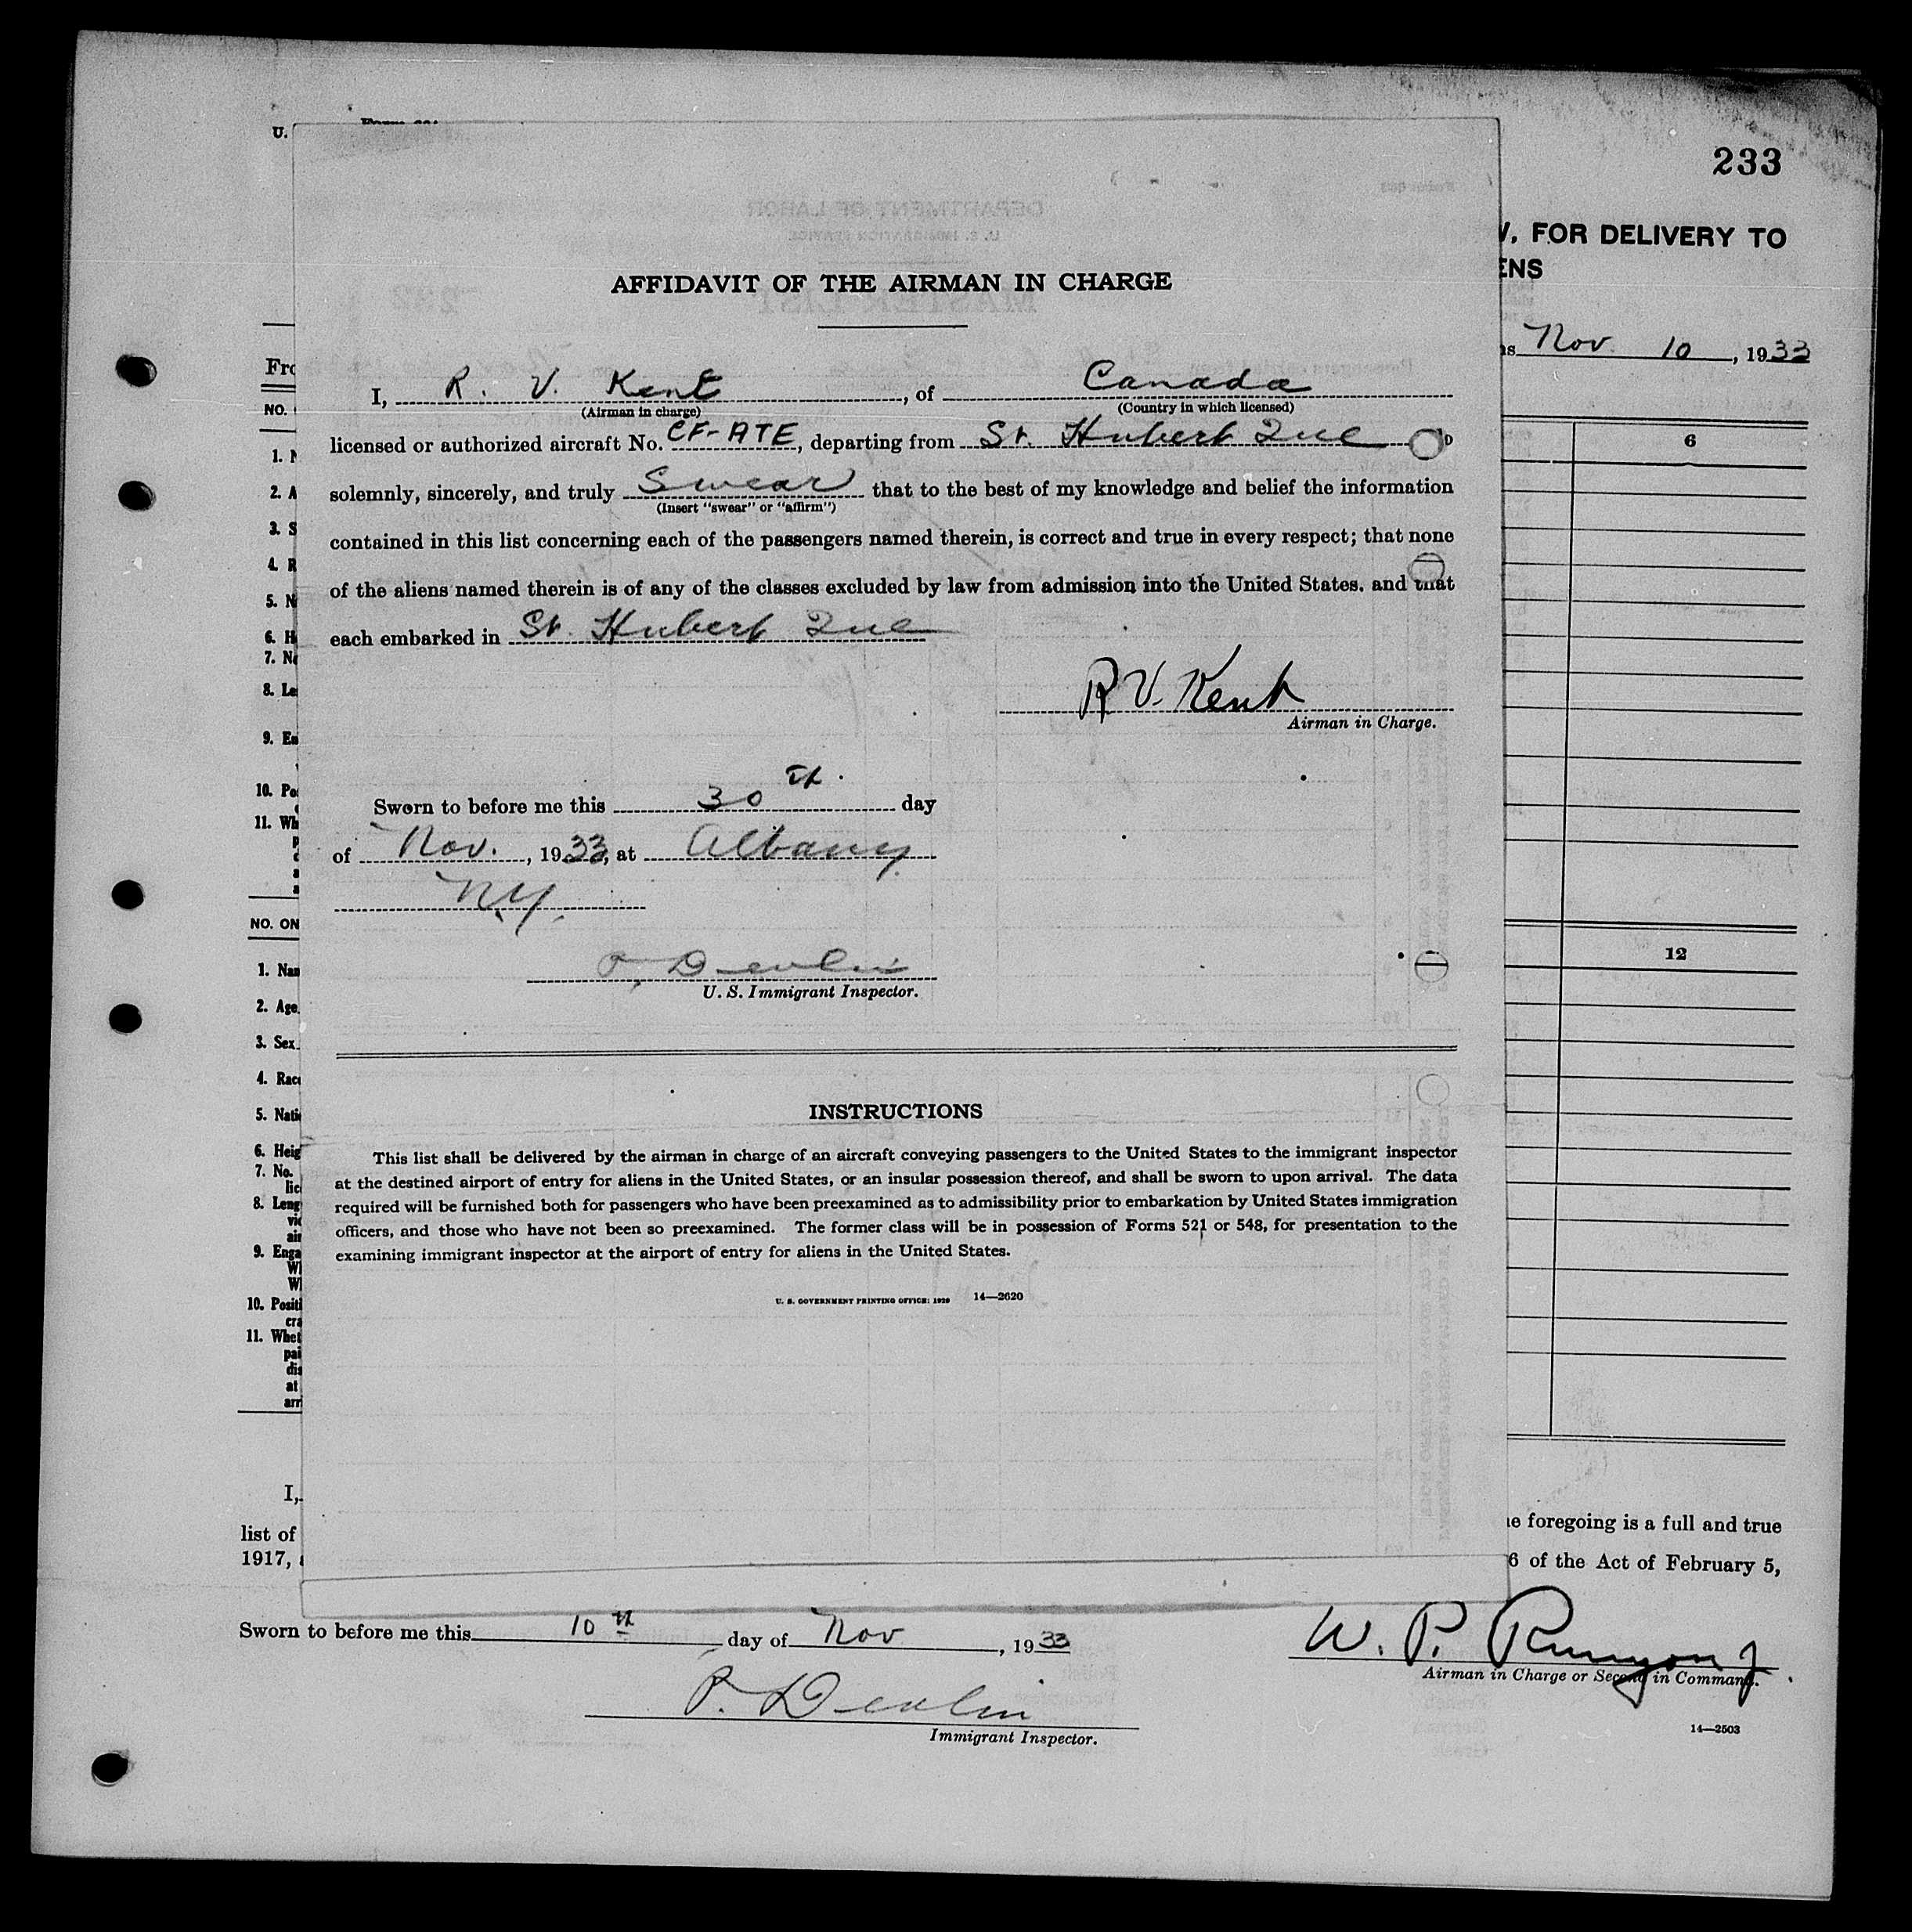 233
U.
V, FOR DELIVERY TO
ENS
Nov. 10, 1933
AFFIDAVIT OF THE AIRMAN IN CHARGE
I, R. V. Kent, of Canada
(Airman in charge) (Country in which licensed)
licensed or authorized aircraft No. CF-ATE, departing from St. Hubert Que
solemnly, sincerely, and truly Swear that to the best of my knowledge and belief the information
(Insert "swear" or "affirm")
contained in this list concerning each of the passengers named therein, is correct and true in every respect; that none
of the aliens named therein is of any of the classes excluded by law from admission into the United States, and that
each embarked in St. Hubert Que
R V. Kent
Airman in Charge.
Sworn to before me this 30th. day
of Nov., 1933, at Albany
N.Y.
P Devlin
U. S. Immigrant Inspector.
INSTRUCTIONS
This list shall be delivered by the airman in charge of an aircraft conveying passengers to the United States to the immigrant inspector
at the destined airport of entry for aliens in the United States, or an insular possession thereof, and shall be sworn to upon arrival. The data
required will be furnished both for passengers who have been preexamined as to admissibility prior to embarkation by United States immigration
officers, and those who have not been so preexamined. The former class will be in possession of Forms 521 or 548, for presentation to the
examining immigrant inspector at the airport of entry for aliens in the United States.
U. S. GOVERNMENT PRINTING OFFICE: 1929 14—2620
Fro
NO.
1. N
2. A
3. S
4. R
5. N
6. H
7. No
8. Le
9. En
10. Po
11. Wh
NO. ON
1. Nam
2. Age
3. Sex
4. Race
5. Nati
6. Heig
7. No.
lic
8. Leng
9. Enga
10. Positi
cra
11. Whet
pai
dis
at
arri
6
12
I,
list of
1917,
e foregoing is a full and true
6 of the Act of February 5,
Sworn to before me this 10th day of Nov, 1933
W. P. Runyon Jr.
Airman in Charge or Second in Command.
P. Devlin
Immigrant Inspector.
14—2503